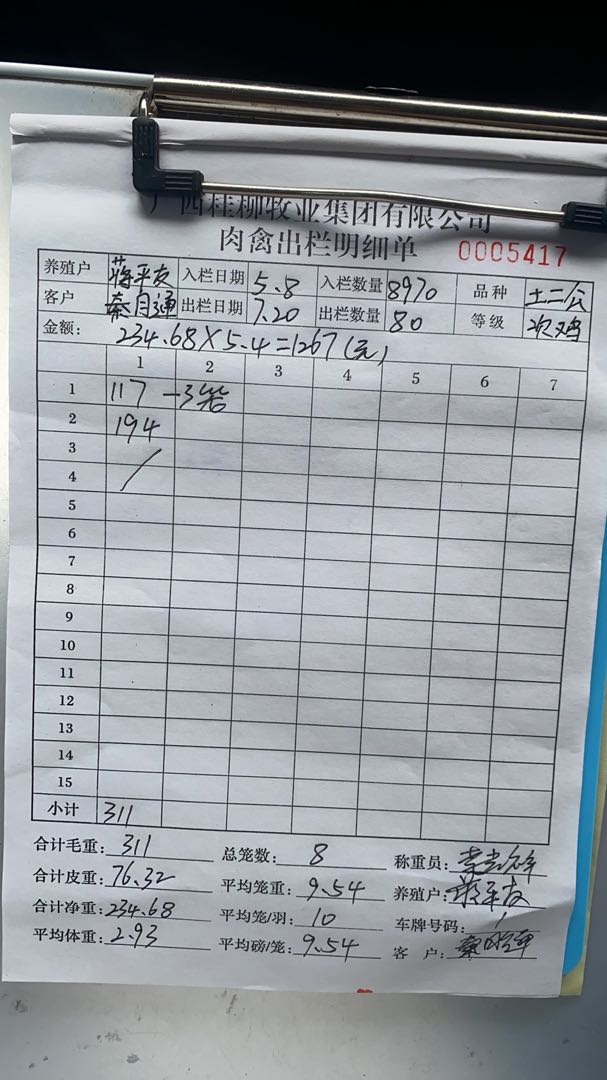 广西桂柳牧业集团有限公司
肉禽出栏明细单 0005417
养殖户 蒋平友 入栏日期 5.8 入栏数量 8970 品种 土二公
客户 秦月通 出栏日期 7.20 出栏数量 80 等级 次鸡
金额: 234.68×5.4=1267(元)
1 2 3 4 5 6 7
1 117 -3笼
2 194
3
4
5
6
7
8
9
10
11
12
13
14
15
小计 311
合计毛重: 311 总笼数: 8 称重员:
合计皮重: 76.32 平均笼重: 9.54 养殖户: 蒋平友
合计净重: 234.68 平均笼/羽: 10 车牌号码: /
平均体重: 2.93 平均磅/笼: 9.54 客户: